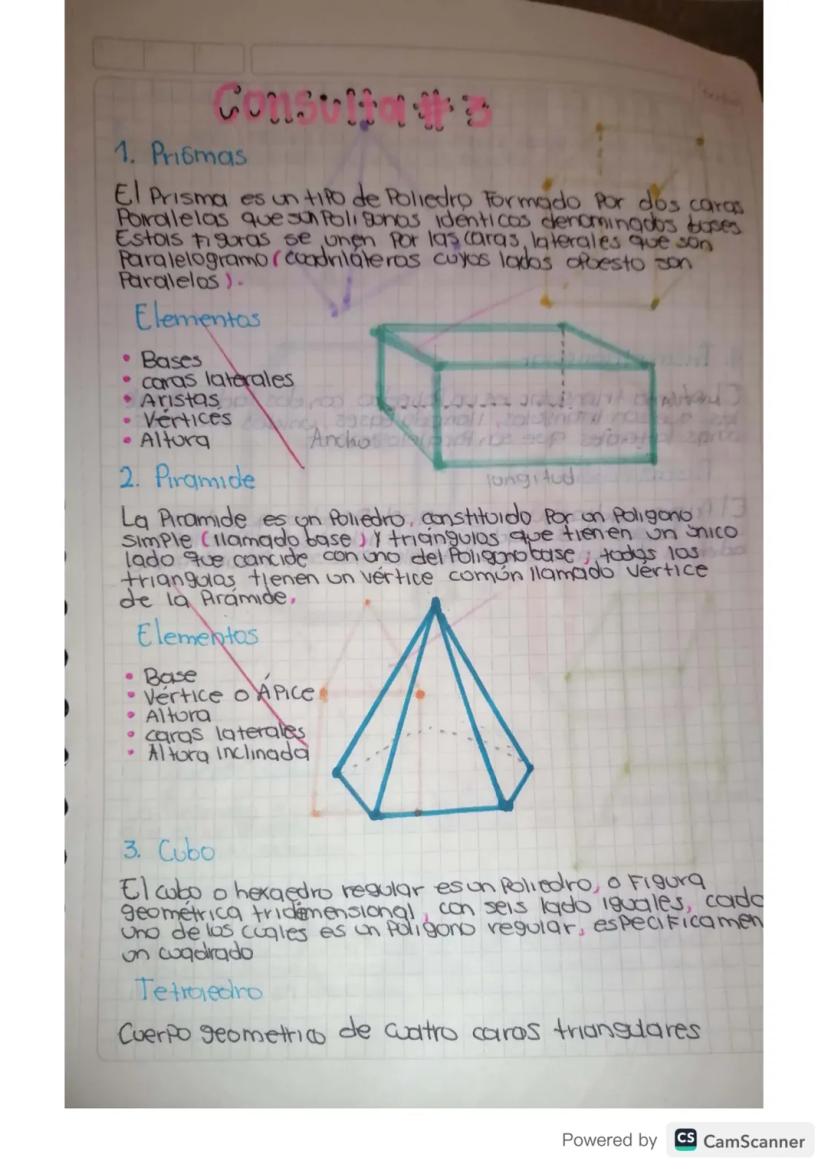 Consulta # 3
1. Prismas
El Prisma es un tipo de Poliedro Formado Por dos caras
Paralelas que son Poligonos identicos denominados bases
Estas Figuras se unen Por las caras laterales que son
Paralelogramo (cuadriláteros cuyos lados opuesto son
Paralelos).
Elementos
• Bases
• caras laterales
• Aristas
• Vértices
• Altura
Ancho
longitud
2. Piramide
La Piramide es un Poliedro, constituido Por un Poligono
simple (llamado base) y triángulos que tienen un único
lado que cancide con uno del Poligono base; todos los
triangulos tienen un vértice común llamado vértice
de la Pirámide.
Elementos
• Base
• Vértice o ÁPice
• Altura
• caras laterales
• Altura inclinada
3. Cubo
El cubo o hexaedro regular es un Poliedro, o Figura
geométrica tridimensional, con seis lado iguales, cada
uno de los cuales es un Poligono regular, especificamen
un cuadrado
Tetraedro
Cuerpo geometrico de cuatro caras triangulares
Powered by CS CamScanner